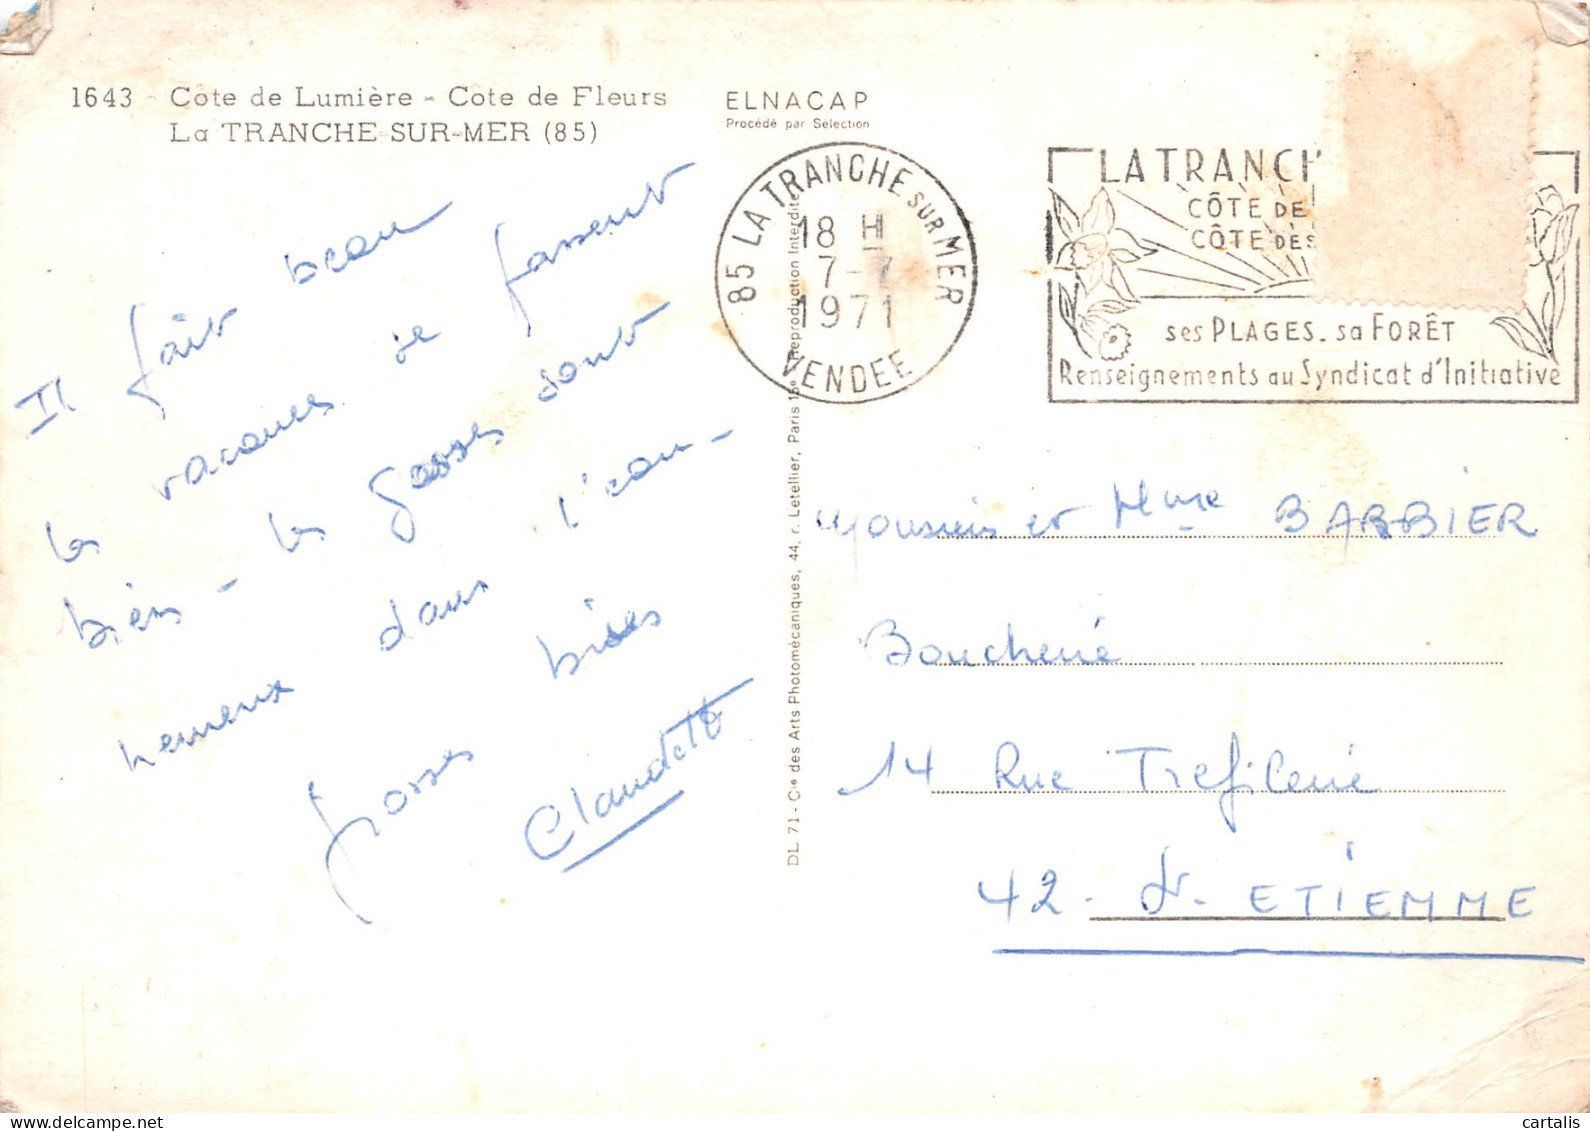 1643 - Côte de Lumière - Cote de Fleurs
La TRANCHE-SUR-MER (85)
ELNACAP
Procédé par Sélection
85 LA TRANCHE SUR MER
18 H
7-7
1971
VENDEE
LA TRANCH
CÔTE DE
CÔTE DES
ses PLAGES. sa FORÊT
Renseignements au Syndicat d'Initiative
Il fait beau
les vacances se passent
bien - les gosses sont
heureux dans l'eau -
grosses bises
Claudette
DL 71 - Cie des Arts Photomécaniques, 44, r. Letellier, Paris 15e Reproduction Interdite
Monsieur et Mme BARBIER
Boucherie
14 Rue Trefilerie
42 - St - ETIEMME
cartalis